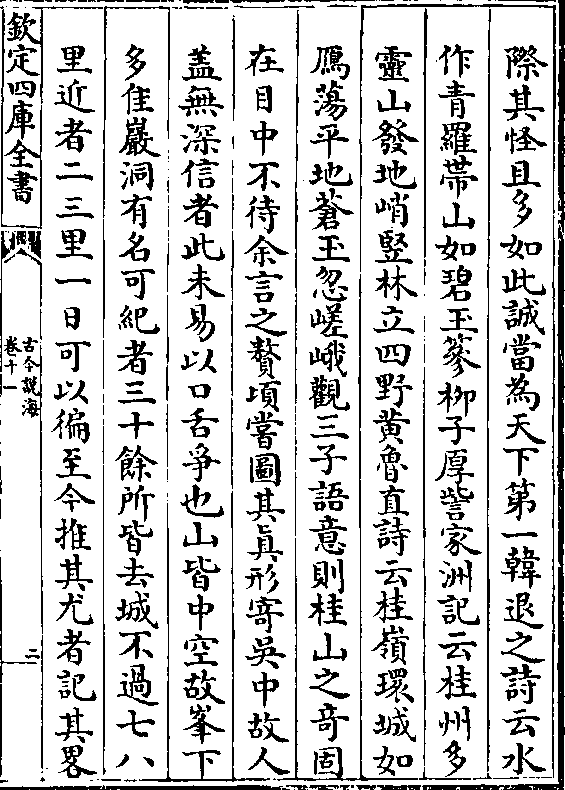 際其怪且多如此誠當為天下第一韓退之詩云水
作青羅帶山如碧玉篸柳子厚訾家洲記云桂州多
靈山發地峭竪林立四野黄魯直詩云桂嶺環城如
鴈蕩平地蒼玉忽嵯峨觀三子語意則桂山之竒固
在目中不待余言之贅頃嘗圖其真形寄吳中故人
蓋無深信者此未易以口舌爭也山皆中空故峯下
多佳巖洞有名可紀者三十餘所皆去城不過七八
里近者二三里一日可以徧至今推其尤者記其畧
欽定四庫全書
古今説海
卷十一
二